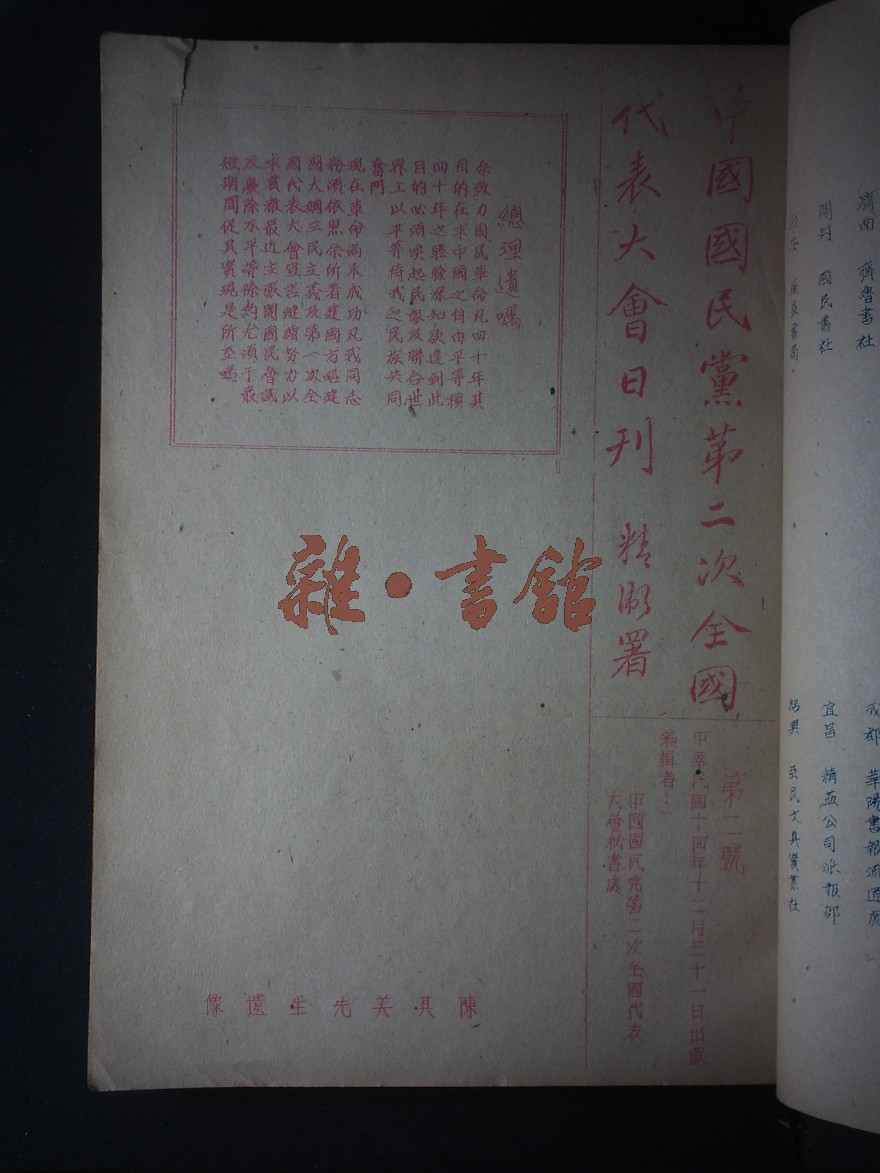 中國國民黨第二次全國
代表大會日刊 精衛署
第二號
中華民國十四年十二月三十一日出版
編輯者：
中國國民党第二次全國代表
大會秘書處
總理遺囑
余致力國民革命凡四十年其
目的在求中國之自由平等積
四十年之經驗深知欲達到此
目的必須喚起民眾及聯合世
界上以平等待我之民族共同
奮鬥
現在革命尚未成功凡我同志
務須依照余所著建國方略建
國大綱三民主義及第一次全
國代表大會宣言繼續努力以
求貫澈最近主張開國民會議
及廢除不平等條約尤須于最
短期間促其實現是所至囑
陳其美先生遺像
雜·書館
濟南 齊魯書社
開封 國民書社
書局
成都 華陽書報流通處
宜昌 精益公司派報部
紹興 亞民文具實業社